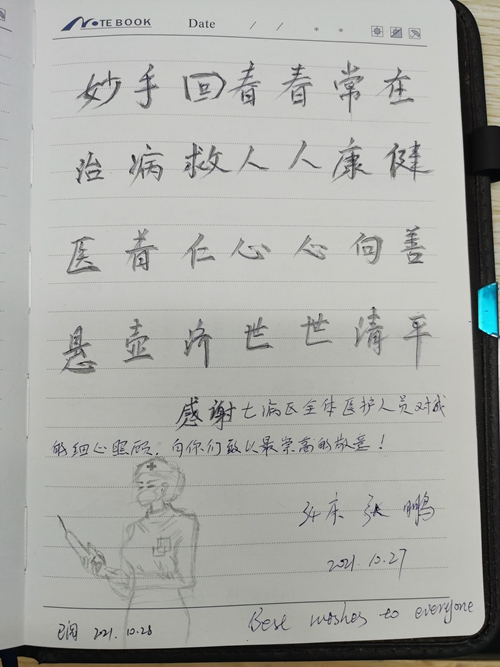 NOTE BOOK Date / / * *
妙手回春春常在
治病救人人康健
医者仁心心向善
悬壶济世世清平
感谢七病区全体医护人员对我
的细心照顾,向你们致以最崇高的敬意!
34床 张鹏
2021.10.27
已阅 2021.10.28 Best wishes to everyone